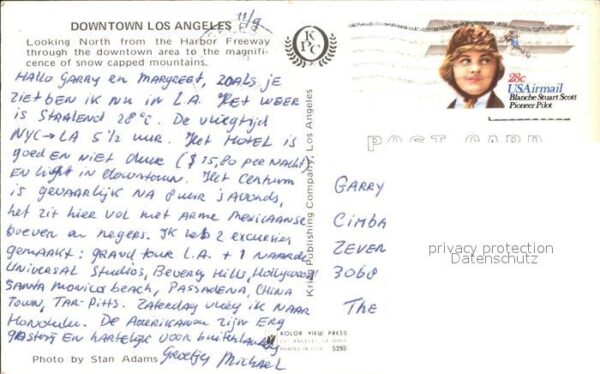 DOWNTOWN LOS ANGELES
11/9
Looking North from the Harbor Freeway
through the downtown area to the magnifi-
cence of snow capped mountains.
Hallo Garry en Margreet, zoals je
ziet ben ik nu in L.A. Het weer
is stralend 28°C. De vliegtijd
NYC → LA 5 1/2 uur. Het hotel is
goed en niet duur ($ 15,80 per nacht)
en ligt in downtown. Het centrum
is gevaarlijk na 8 uur 's avonds,
het zit hier vol met arme Mexicaanse
boeven en negers. Ik heb 2 excursies
gemaakt: grand tour L.A. + 1 naar de
Universal Studios, Beverly Hills, Hollywood
Santa Monica beach, Passadena, China
Town, Tar-Pitts. Zaterdag vlieg ik naar
Honolulu. De Amerikanen zijn erg
gastvrij en hartelijk voor buitenlanders
Groetjes Michael
Photo by Stan Adams
KPC
Kring Publishing Company, Los Angeles
KOLOR VIEW PRESS
LOS ANGELES, CA
PRINTED IN U.S.A. 5293
28c
USAirmail
Blanche Stuart Scott
Pioneer Pilot
POST CARD
GARRY
CIMBA
ZEVEN
3068
THE
privacy protection
Datenschutz